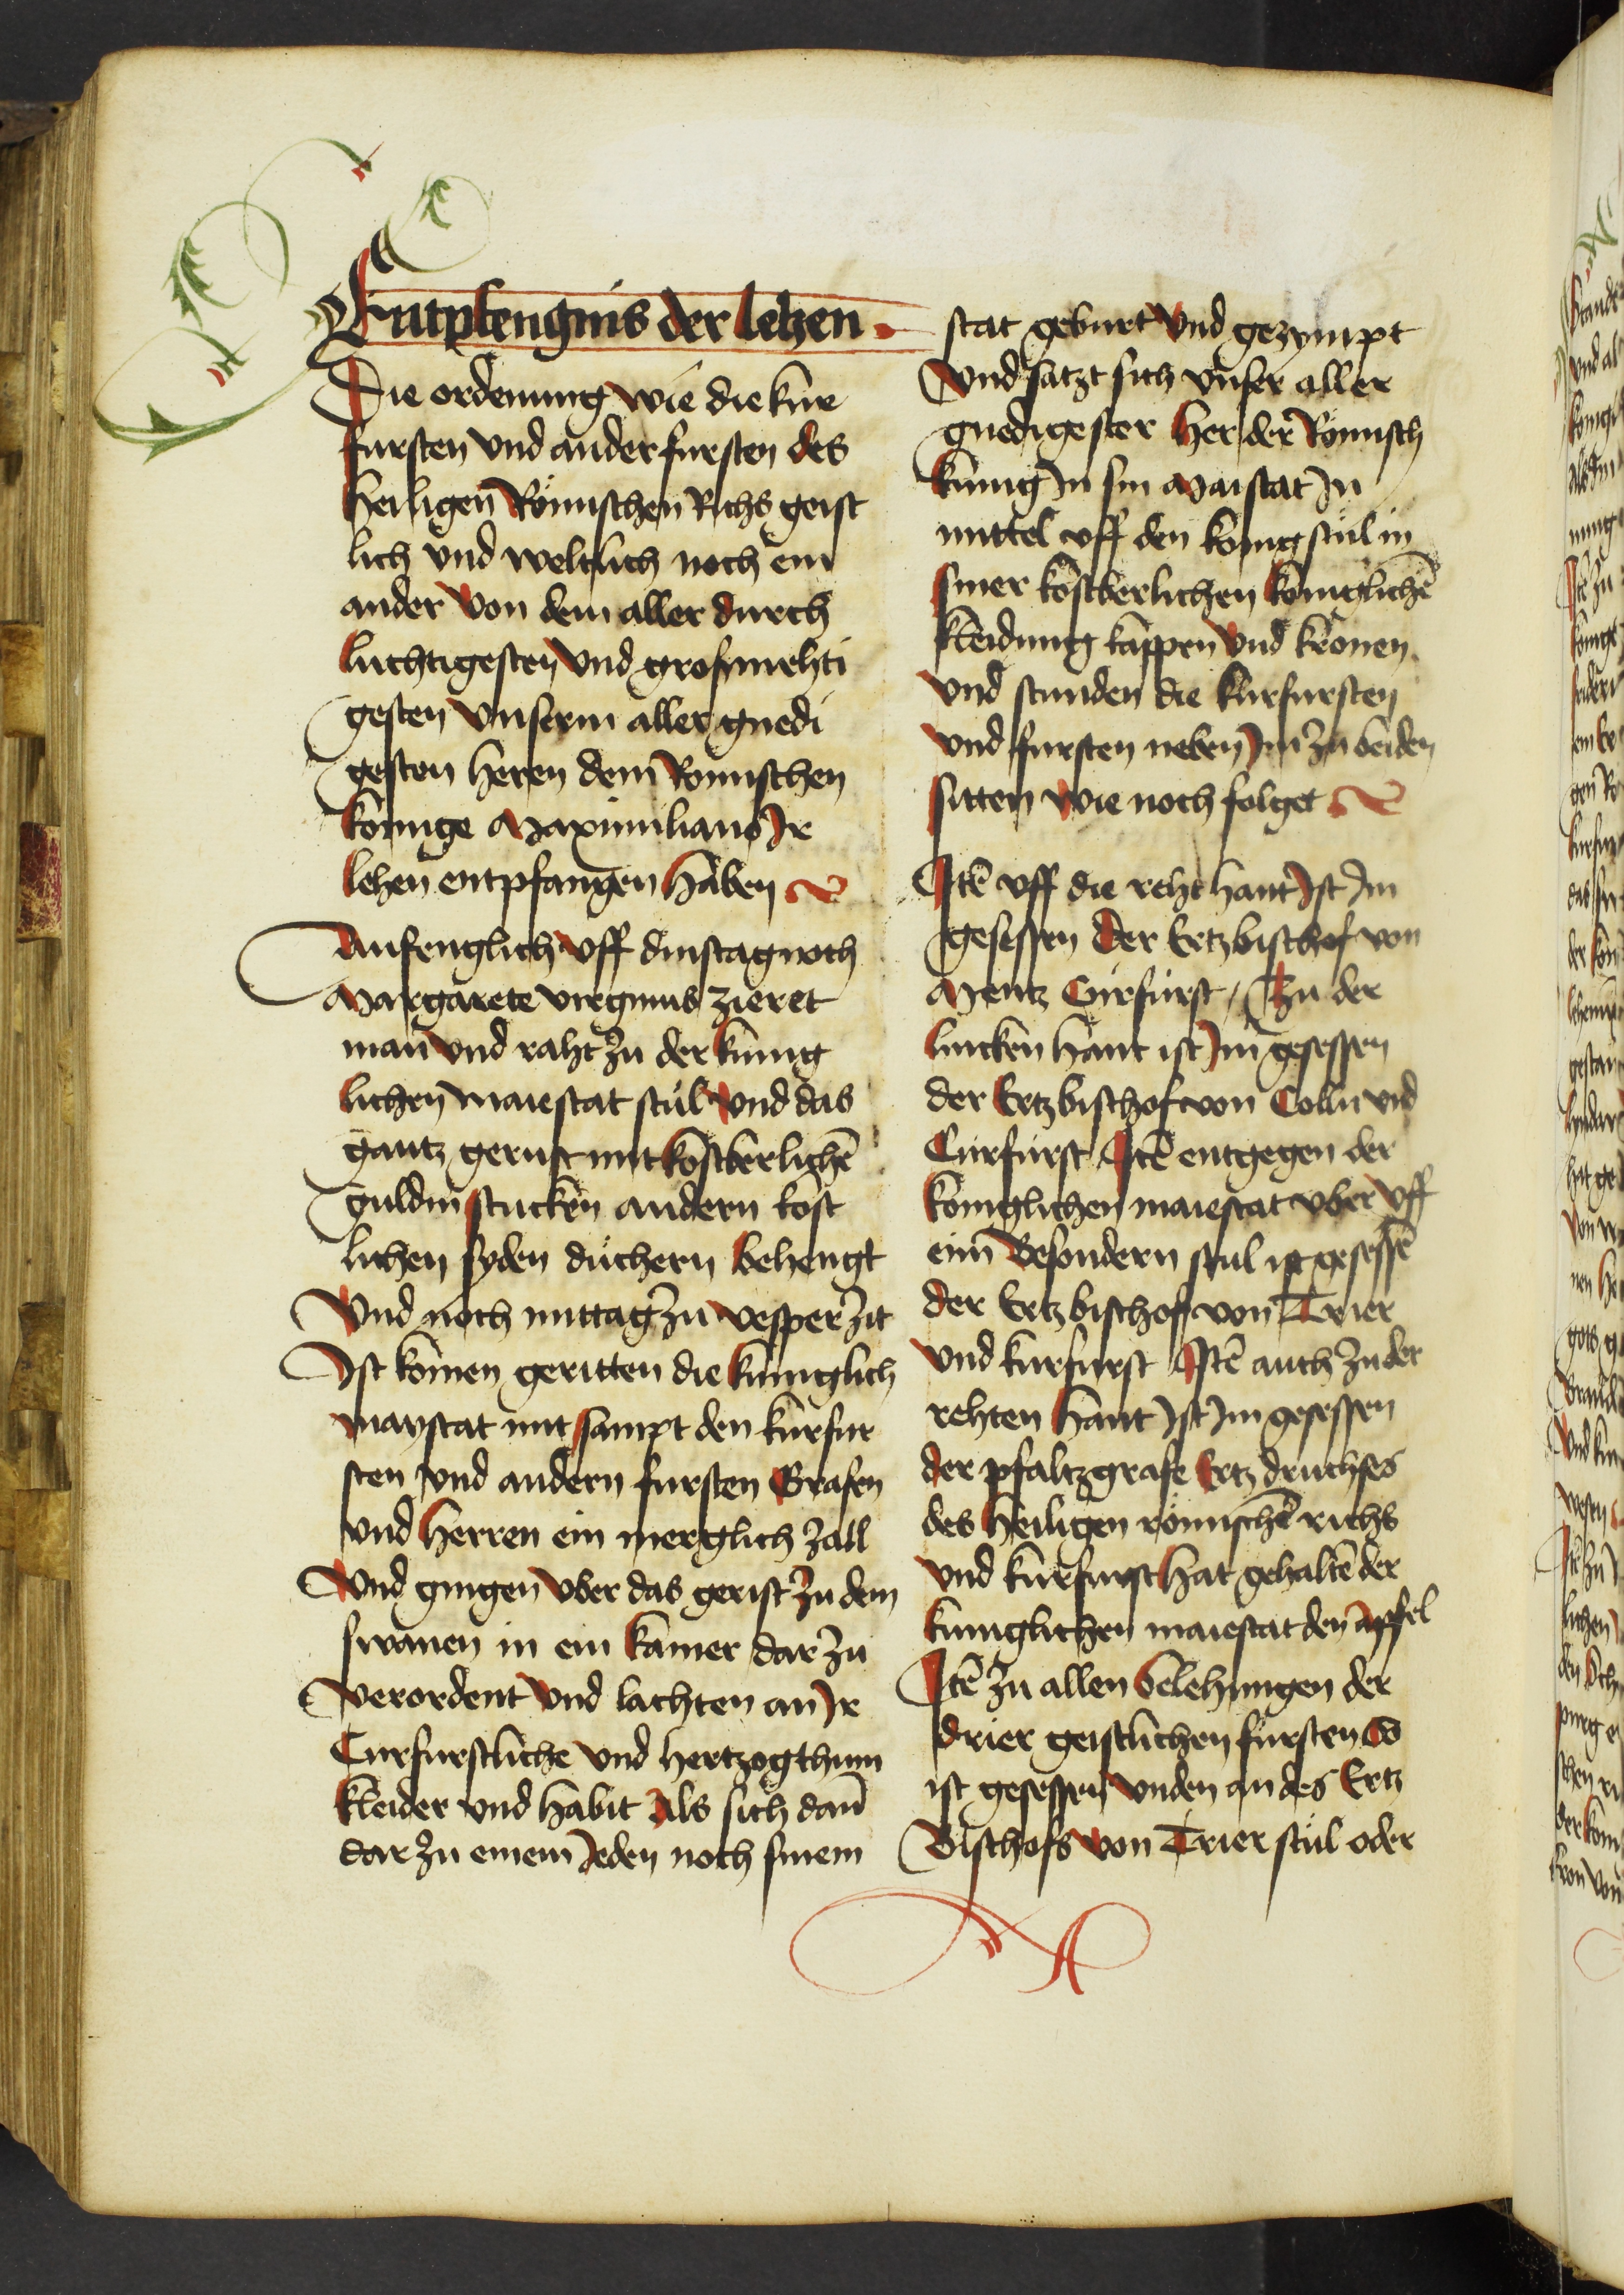 Entpfengnis der lehen
Die ordenung wie die kur
fursten vnd ander fursten des
heiligen Römischen Richs geist
lich vnd weltlich noch ein
ander von dem aller durch
luchtigesten vnd grosmehti
gesten vnserm aller gnedi
gesten heren dem Romischen
konige Maximiliano Jr
lehen entpfangen haben
Anfenglich vff dinstag noch
Margarete virginis zieret
man vnd raht zu der kunig
lichen maiestat stůl vnd das
gantz gerust mit kostberlichē
guldin stucken andern kost
lichen syden důchern behengt
Vnd noch mittag zu vesper zit
Ist komen geritten die kuniglich
maystat mit sampt den kurfur
sten vnd andern fursten Grafen
vnd herren ein merglich zall
Vnd gingen vber das gerist zu dem
swanen in ein kamer dar zu
verordent vnd lachten an Jr
Curfurstliche vnd hertzogthum
kleider vnd habit Als sich dan̄
dar zu einem Jeden noch sinem
stat geburt vnd gezympt
Vnd satzt sich vnser aller
gnedigester her der Römisch
kunig Jn sin Maistat Jn
mittel vff den konigstůl in
siner kostberlichen koniglichē
kleidung kappen vnd kronen
vnd stunden die kurfursten
vnd fursten neben Jm zu beiden
sitten wie noch folget
Itē vff die reht hant Ist Jm
gesessen der Ertzbischof von
Mentz Curfurst / Zu der
lincken hant ist Jm gesessen
der Ertzbischof von Colln vnd
Curfurst Itē entgegen der
koniglichen maiestat vber vff
eim besondern stul ist gesessē
der Ertzbischof von Trier
vnd kurfurst Itē auch zu der
rehten hant Ist Jm gesessen
der pfaltzgrafe Ertz druchses
des heiligen römischē richs
vnd kurfurst hat gehaltē der
kuniglichen maiestat den apfel
Itē zu allen belehungen der
drier geistlichen fursten So
ist gesessen vnden an des Ertz
Bischofs von Trier stůl oder